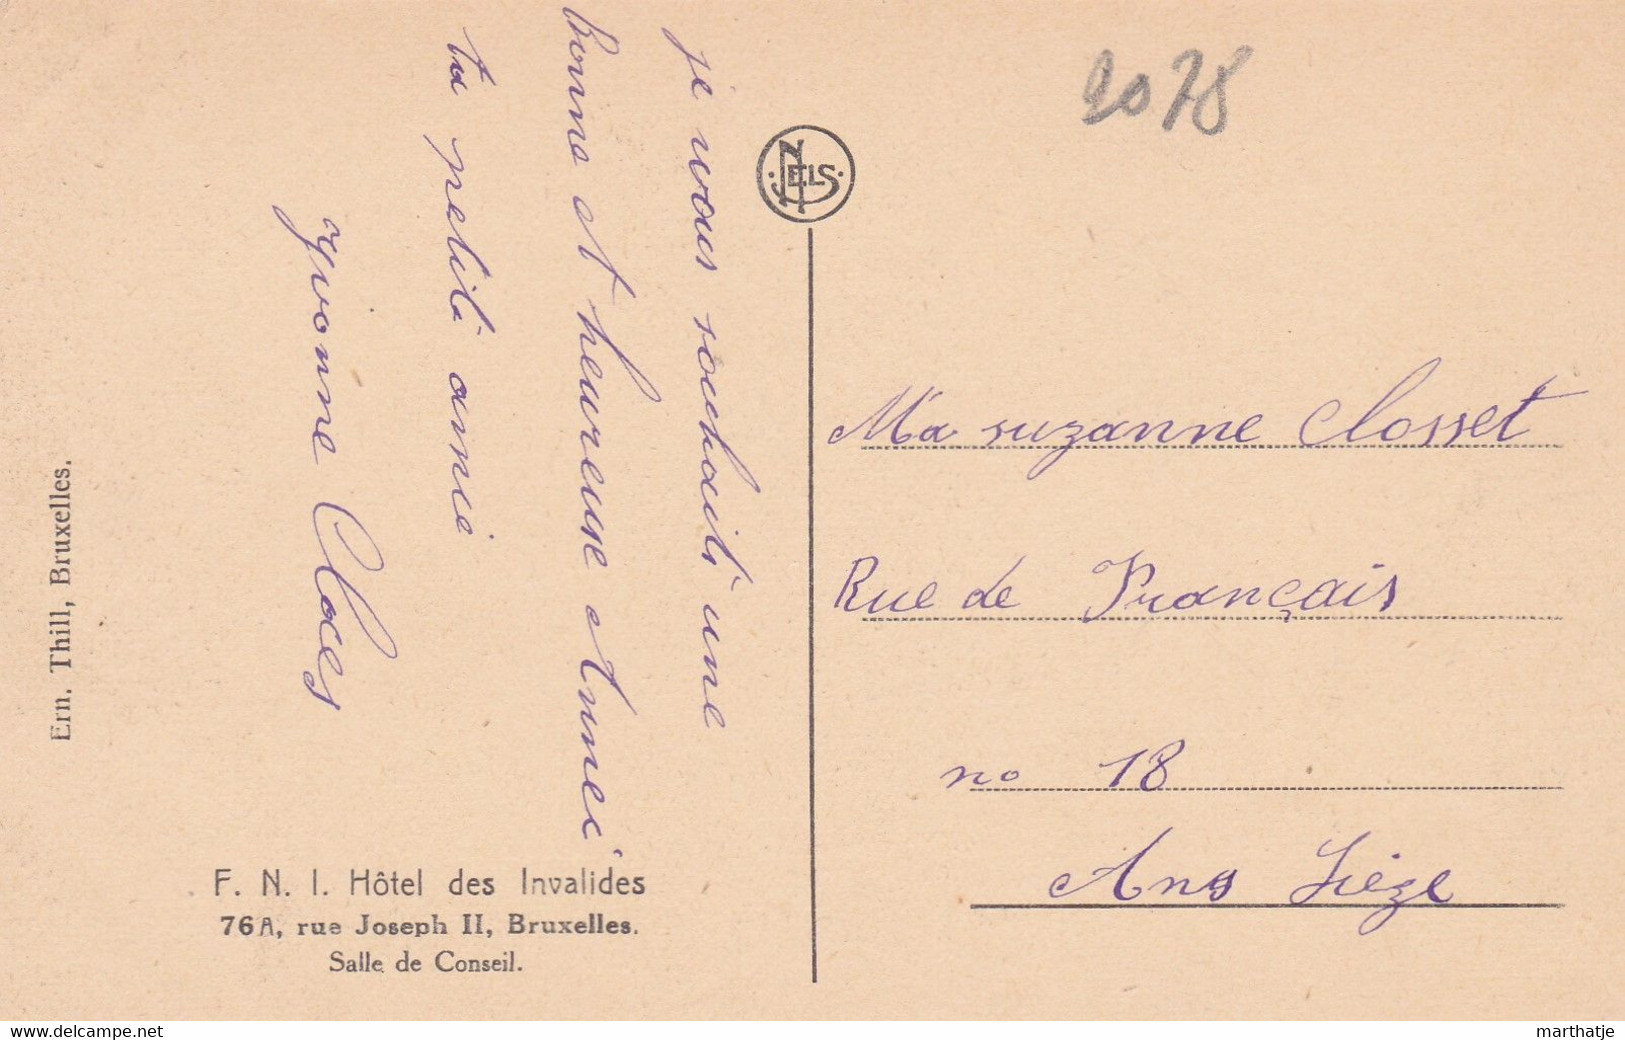 je vous souhaiti une
bonne et heureuse Annei
ta petiti amie
yvonne Cloes
Ern. Thill, Bruxelles.
F. N. I. Hôtel des Invalides
76A, rue Joseph II, Bruxelles.
Salle de Conseil.
NELS
2078
Ma suzanne Closset
Rue de Français
no 18
Ans Liége
www.delcampe.net
marthatje